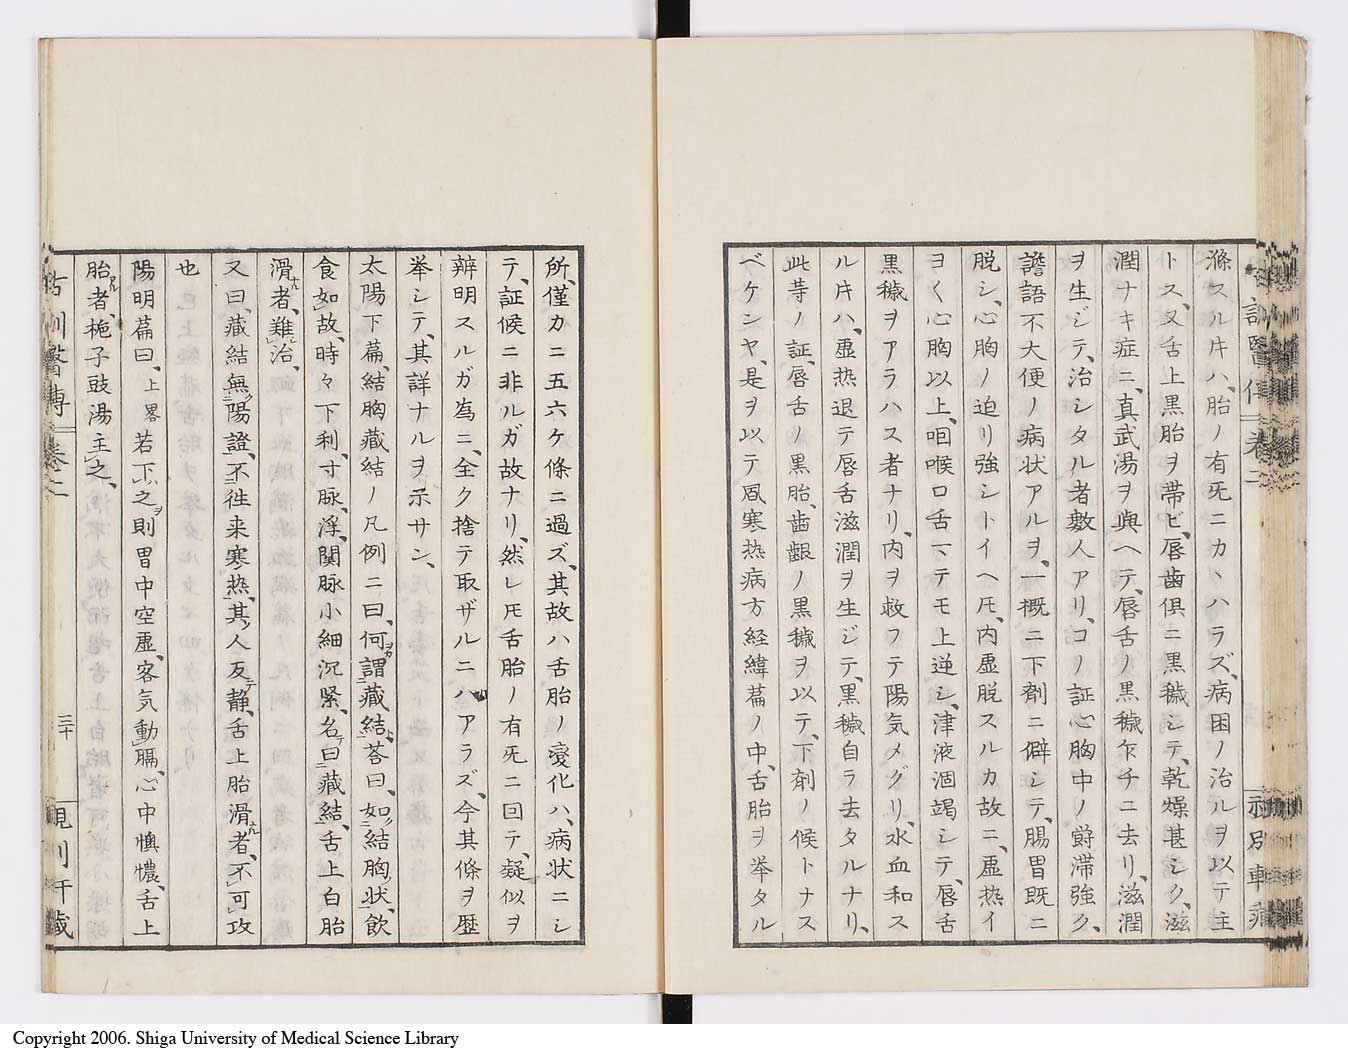 滌スル𪜈ハ、胎ノ有死ニカヽハラズ、病困ノ治ルヲ以テ主
トス、又舌上黒胎ヲ帯ビ、唇歯倶ニ黒穢シテ、乾燥甚シク、滋
潤ナキ症ニ、真武湯ヲ與ヘテ、唇舌ノ黒穢乍チニ去リ、滋潤
ヲ生ジテ、治シタル者数人アリ、コノ証心胸中ノ欝滞強ク、
譫語不大便ノ病状アルヲ、一概ニ下剤ニ僻シテ、腸胃既ニ
脱シ、心胸ノ迫リ強シトイヘ𪜈、内虚脱スルカ故ニ、虚热イ
ヨく心胸以上、咽喉口舌ヽテモ上逆シ、津液涸竭シテ、唇舌
黒穢ヲアラハス者ナリ、内ヲ救フテ陽気メグリ、水血和ス
ル𪜈ハ、虚热退テ唇舌滋潤ヲ生ジテ、黒穢自ラ去タルナリ、
此䓁ノ証、唇舌ノ黒胎、歯齦ノ黒穢ヲ以テ、下剤ノ候トナス
ベケンヤ、是ヲ以テ風寒热病方経緯篇ノ中、舌胎ヲ挙タル
所、僅カニ五六ケ條ニ過ズ、其故ハ舌胎ノ変化ハ、病状ニシ
テ、証候ニ非ルガ故ナリ、然レ𪜈舌胎ノ有死ニ回テ、疑似ヲ
辨明スルガ為ニ、全ク捨テ取ザルニハアラズ、今其條ヲ歴
挙シテ、其詳ナルヲ示サン、
太陽下篇、結胸藏結ノ凡例ニ曰、何謂藏結、荅曰、如結胸状、飲
食如故、時々下利、寸脉浮、関脉小細沉緊、名曰藏結、舌上白胎
滑者、難治、
又曰、藏結無陽證、不徃来寒热、其人反静、舌上胎滑者、不可攻
也
陽明篇曰、上畧若下之、則胃中空虚、客気動膈、心中懊憹、舌上
胎者、梔子豉湯主之、
古訓醫傳 卷二 三十
Copyright 2006. Shiga University of Medical Science Library